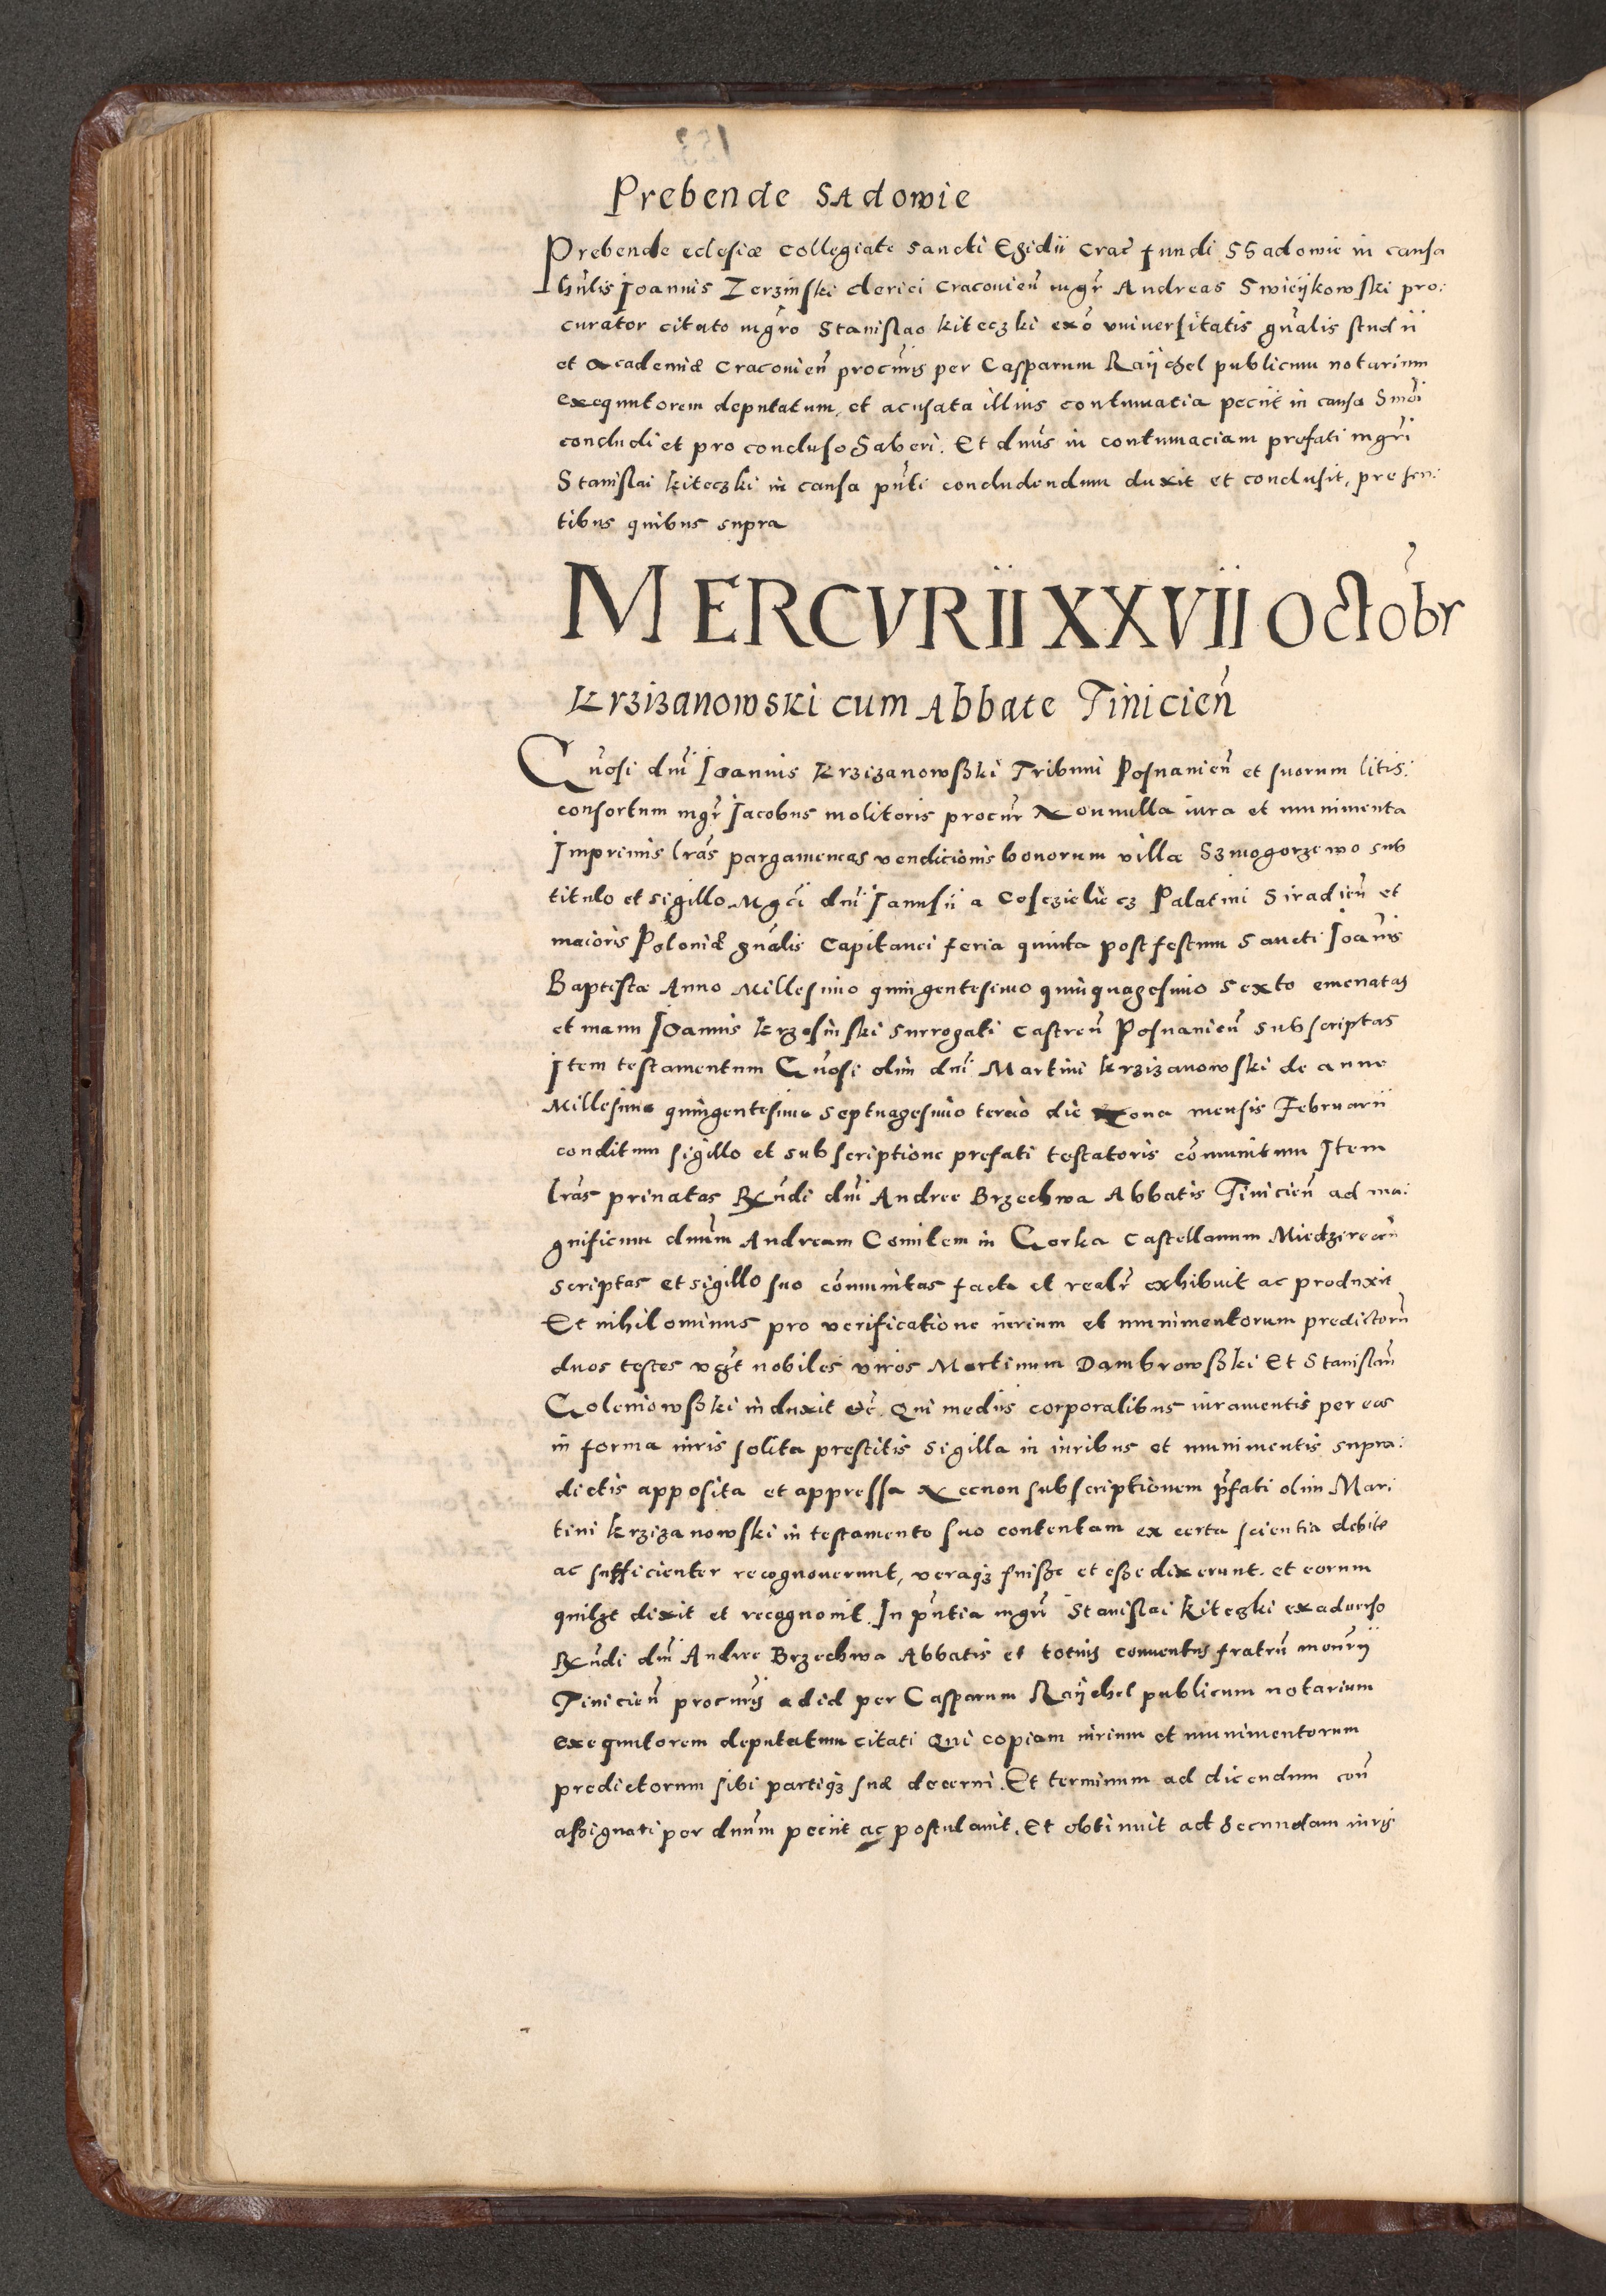 Prebende Sadowie
Prebende eclesiæ collegiate sancti Egidii Crac̃ fundi Ssadowie in causa
hñlis Joannis Zerzinski clerici Cracouień mgr̃ Andreas Swiejkowski pro:
curator citato mgr̃o Stanislao kiteczki exõ vniuersitatis gñalis studii
et Academiæ Cracouień procuris per Casparum Raijchel publicum notarium
exequutorem deputatum, et acusata illius contumatia peciit in causa Smõi
concludi et pro concluso haberi. Et dnũs in contumaciam prefati mgr̃i
Stanislai kiteczki in causa pñti concludendum duxit et conclusit, presen:
tibus quibus supra
MERCVRII XXVII Octobr
Krzizanowski cum Abbate Tinicień
Gñosi dnĩ Joannis Krzizanowsski Tribuni Posnanień et suorum litis:
consortum mgr̃ Jacobus molitoris procur̃ Nonnulla iura et munimenta
Imprimis lrãs pargameneas vendicionis bonorum villæ Szmogorzewo sub
titulo et sigillo Mgcĩ dnĩ Janusii a Cosczieliecz Palatini Siradień et
maioris Poloniæ gñalis Capitanei feria quinta post festum Sancti Joañis
Baptistæ Anno Millesimo quingentesimo quinquagesimo Sexto emenatas
et manu Joannis krzesinski surrogati castreñ Posnanień subscriptas
Item testamentum Gñosi olim dnĩ Martini krzizanowski de anno
Millesimo quingentesimo septuagesimo tercio die Nona mensis Februarii
conditum sigillo et subscriptione prefati testatoris cõmunitum Item
lrãs priuatas Rñdi dnĩ Andree Brzechwa Abbatis Tinicień ad ma:
gnificum dnũm Andream Comitem in Gorka castellanum Miedzirecen̄
scriptas et sigillo suo cõmunitas facto et realr̃ exhibuit ac produxit
Et nihilominus pro verificatione iurium et munimentorum predictorũ
duos testes vgt̃ nobiles viros Martinum Dambrowsski Et Stanislaũ
Goleniowsski induxit etc̃. Qui mediis corporalibus iuramentis per eos
in forma iuris solita prestitis sigilla in iuribus et munimentis supra:
dictis apposita et appressa Necnon subscriptionem p̃fati olim Mar:
tini krzizanowski in testamento suo contentam ex certa scientia debite
ac sufficienter recognouerunt, veraqz fuisse et esse dixerunt. et eorum
quilzt dixit et recognouit. In pñtia mgr̃i Stanislai kiteczki ex aduerso
Rñdi dnĩ Andree Brzechwa Abbatis et totius conuentus fratrũ mon̄rij
Tinicień procuris ad id per Casparum Raijchel publicum notarium
exequutorem deputatum citati Qui copiam iurium et munimentorum
predictorum sibi partiqz suæ decerni. Et terminum ad dicendum coñ
assignari per dnũm peciit ac postulauit. Et obtinuit ad Secundam iuris